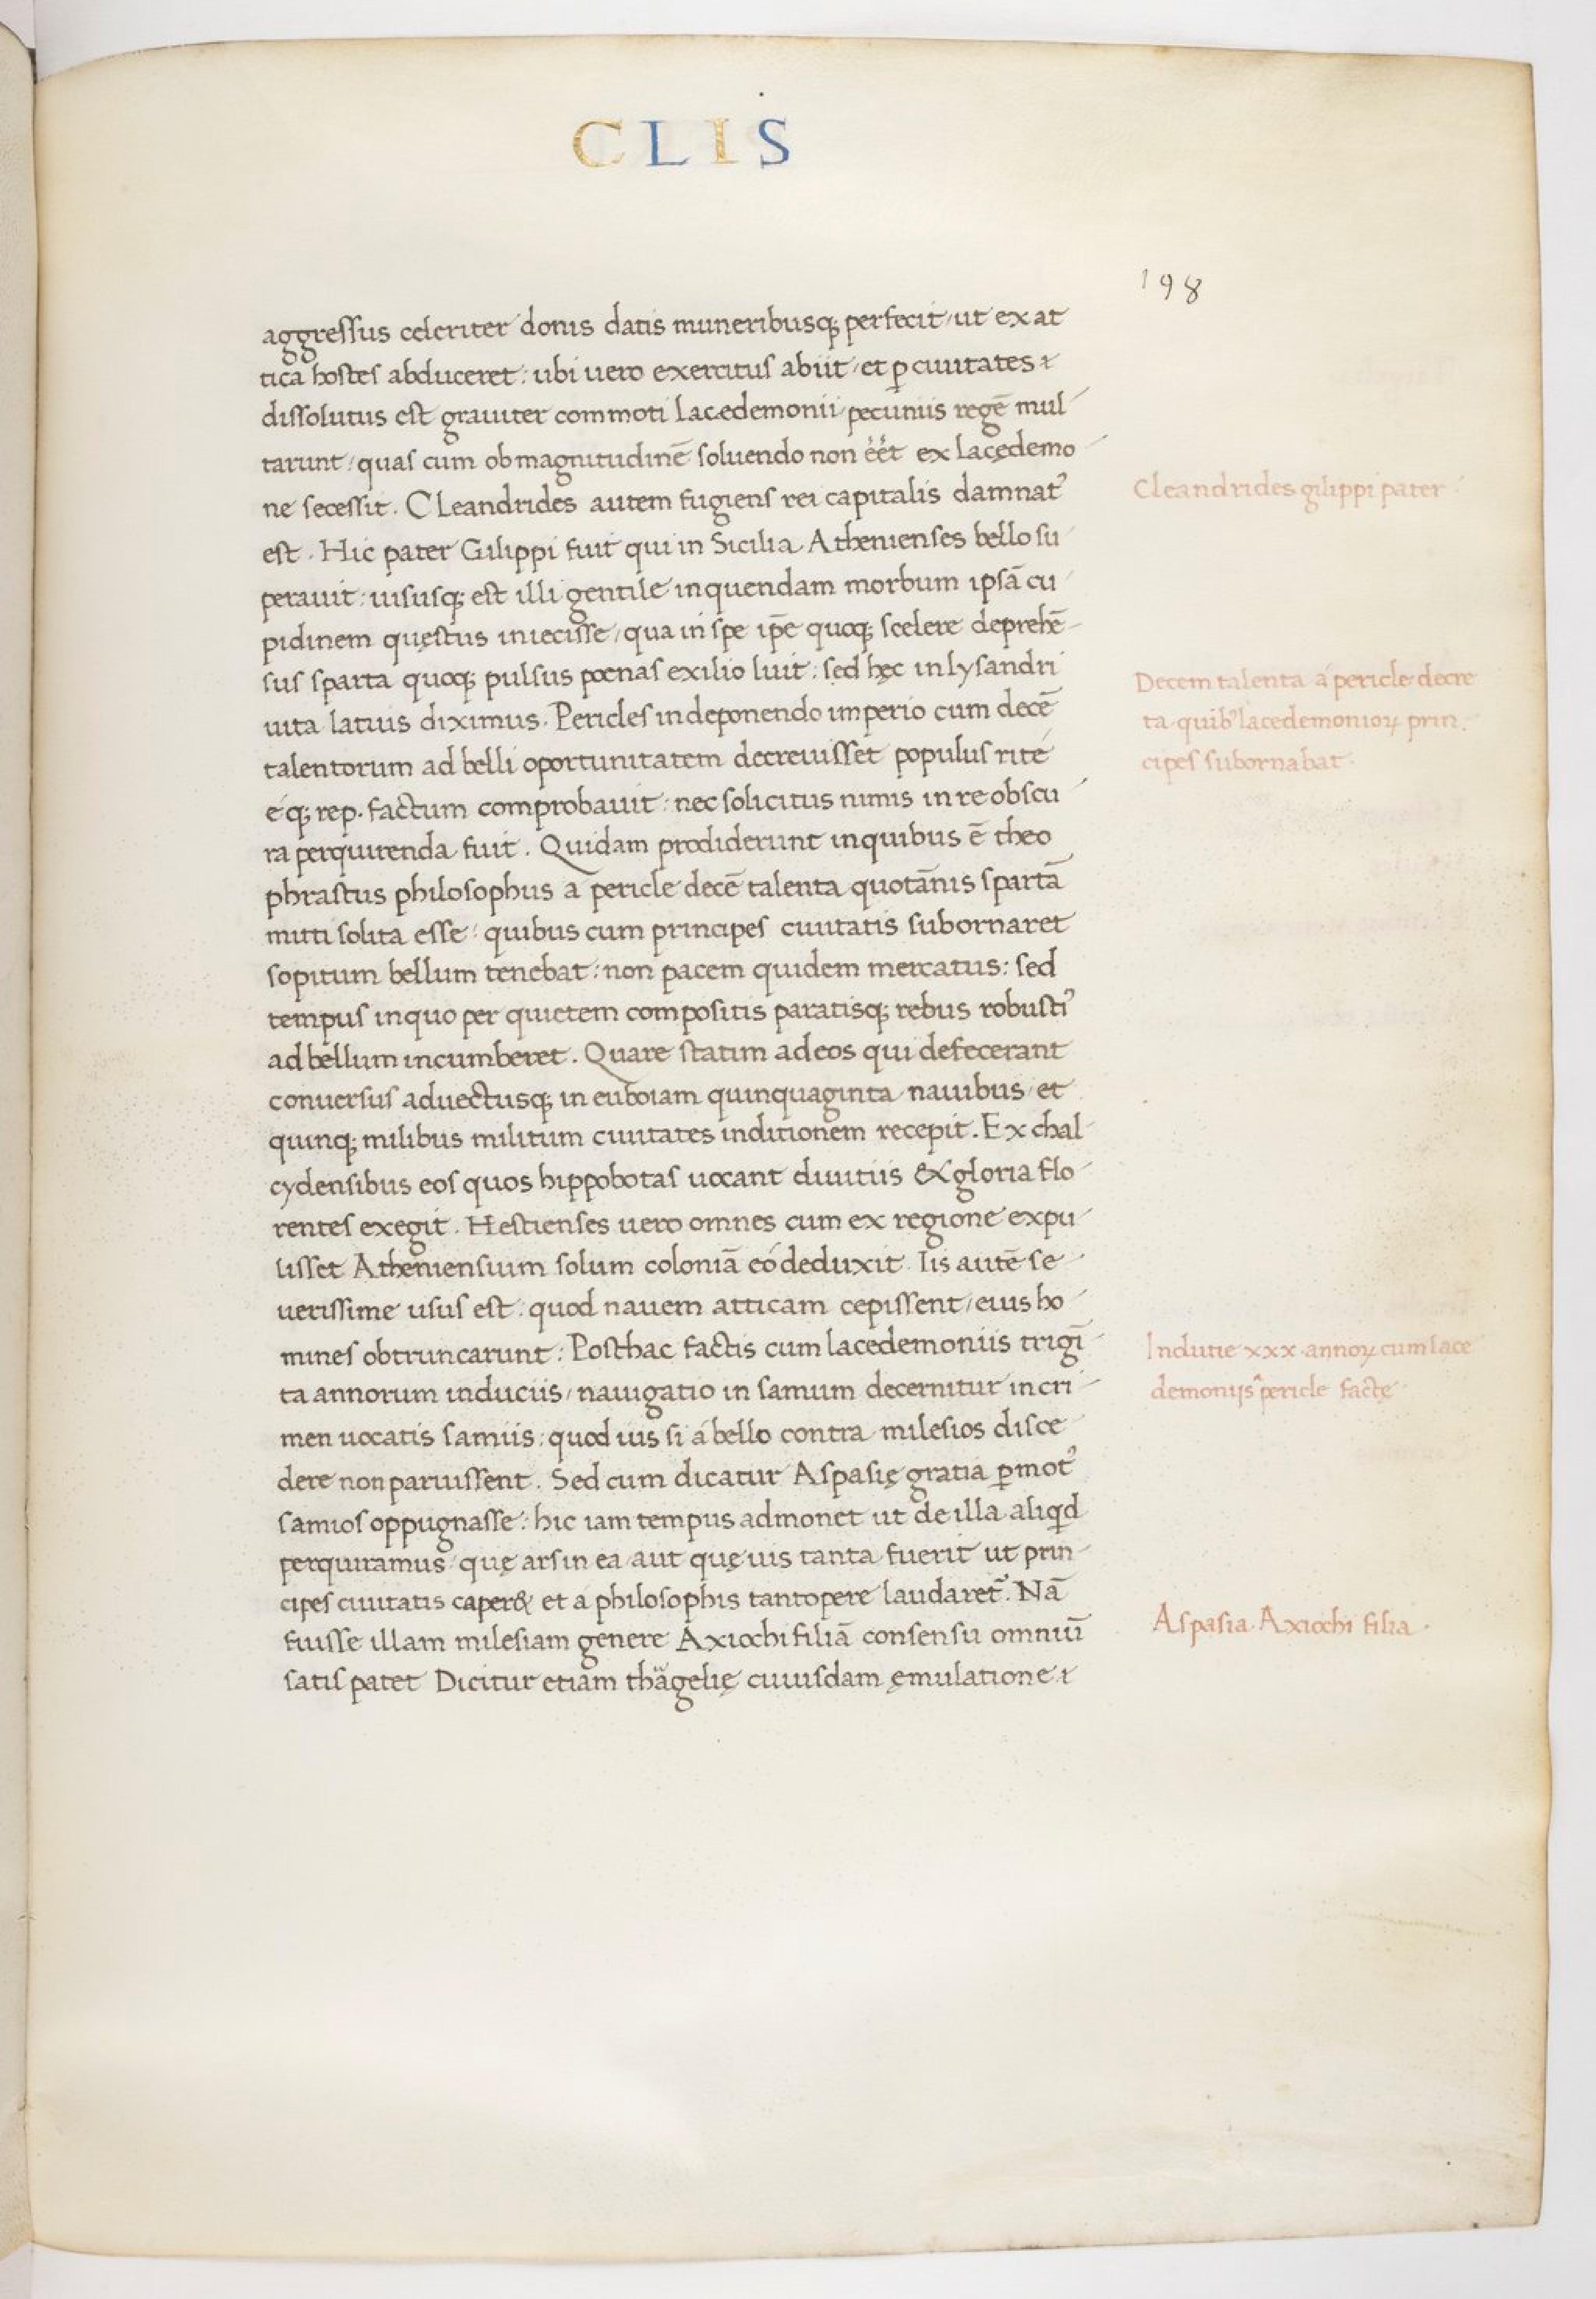 CLIS
198
aggressus celeriter donis datis muneribusq; perfecit, ut ex at
tica hostes abduceret: ubi uero exercitus abiit, et ꝑ ciuitates ⁊
dissolutus est grauiter commoti Lacedemonii, pecuniis regē mul
tarunt, quas cum ob magnitudinē soluendo non éét ex lacędemo
ne secessit. Cleandrides autem fugiens rei capitalis damnatꝰ
est. Hic pater Gilippi fuit qui in Sicilia Athenienses bello su
perauit: uisusq; est illi gentile in quendam morbum ipsā cu
pidinem quęstus iniecisse, qua in spe ip̄e quoq; scelere deprehē
sus sparta quoq; pulsus poenas exilio luit: sed hęc in lysandri
uita latius diximus. Pericles in deponendo imperio cum decē
talentorum ad belli oportunitatem decreuisset populus rite
é q; rep. factum comprobauit: nec solicitus nimis in re obscu
ra perquirenda fuit. Quidam prodiderunt in quibus ē theo
phrastus philosophus a pericle decē talenta quotānis spartā
mitti solita esse: quibus cum principes ciuitatis subornaret
sopitum bellum tenebat: non pacem quidem mercatus: sed
tempus in quo per quietem compositis paratisq; rebus robustiꝰ
ad bellum incumberet. Quare statim ad eos qui defecerant
conuersus aduectusq; in euboiam quinquaginta nauibus, et
quinq; milibus militum ciuitates in ditionem recepit. Ex chal
cydensibus eos quos hippobotas uocant diuitiis & gloria flo
rentes exegit. Hestienses uero omnes cum ex regione expu
lisset Atheniensium solum coloniā eó deduxit. Iis autē se
uerissime usus est: quod nauem atticam cepissent, eius ho
mines obtruncarunt: Posthac factis cum lacedemoniis trigī
ta annorum induciis, nauigatio in samum decernitur in cri
men uocatis samiis: quod ius si á bello contra milesios disce
dere non paruissent. Sed cum dicatur Aspasię gratia ꝑmotꝰ
samios oppugnasse: hic iam tempus admonet ut de illa aliqd
perquiramus quę ars in ea aut quę uis tanta fuerit ut prin
cipes ciuitatis caper& et a philosophis tantopere laudaret᷑. Nā
fuisse illam milesiam genere Axiochi filiā consensu omniū
satis patet Dicitur etiam thägelię cuiusdam ęmulatione ⁊
Cleandrides gilippi pater
Decem talenta á pericle decre
ta quibꝰ lacedemonioꝝ prin
cipes subornabat
Indutie xxx annoꝝ cum lace
demonijs pericle factę
Aspasia Axiochi filia